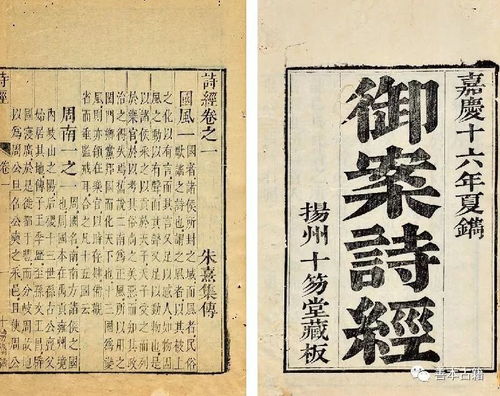 嘉慶十六年夏鐫
御案詩經
揚州十笏堂藏板
詩經卷之一
朱熹集傳
國風一 國者諸侯所封之域而風者民俗
歌謠之詩也謂之風者以其被上
之化以有言而其言又足以感人如物因
風之動以有聲而其聲又足以動物也是
以諸侯采之以貢於天子天子受之而列
於樂官於以考其俗尚之美惡而知其政
治之得失焉舊說二南為正風所以用之
閨門鄉黨邦國而化天下也十三國為變
風則亦領在樂官以時存肄備觀
省而垂監戒耳合之凡十五國云
周南一之一 周國名南南方諸侯之國
也周國本在禹貢雍州境
內岐山之陽后稷十三世孫古公亶父
始居其地傳子王季歷至孫文王昌辟
國寖廣於是徙都于豐而分岐周故地
以為周公旦召公奭之采邑且使周公
詩經 卷一
善本古籍